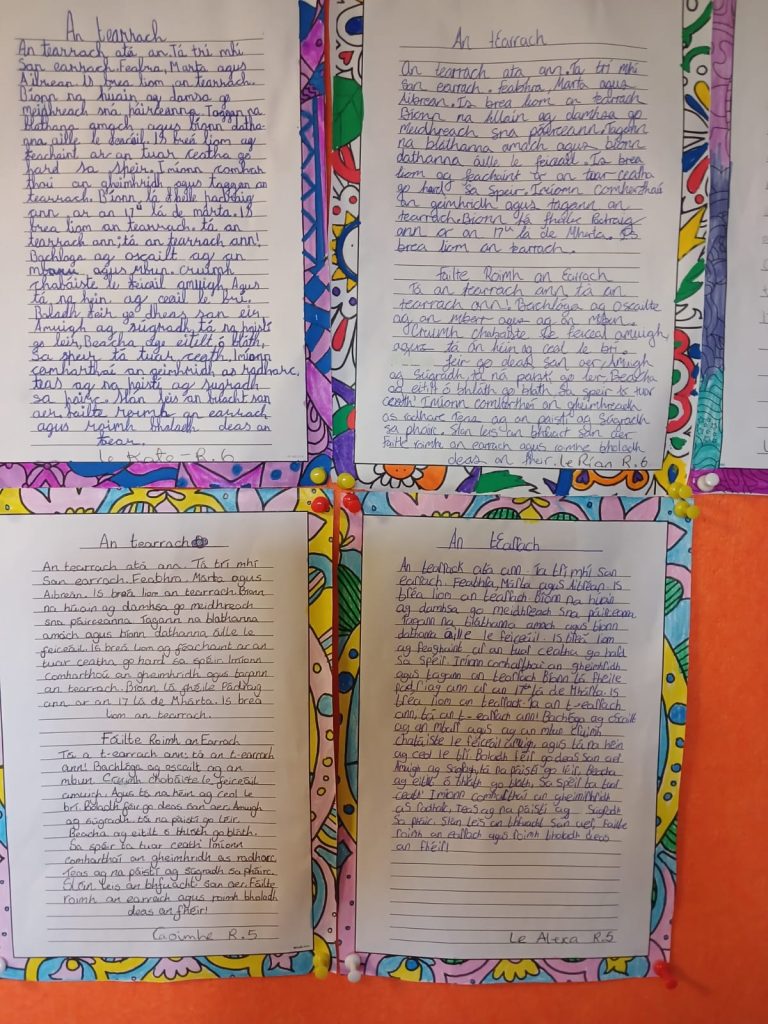 An tearrach
An tearrach atá an. Tá trí mhí
San earrach. Feabra, Marta agus
Aibrean. Is brea liom an tearrach.
Bíonn na huain ag damsa go
meidhreach sná páirceanna. Taggan na
blathana amach agus bíonn datha-
nna aille le feiceáil. Is breá liom ag
feachaint ar an tuar ceatha go
hard sa speir. Imíonn comhar
thaí an gheimhridh agus taggan an
tearrach. Bíonn lá fhéile padraig
ann ar an 17ú lá de márta. Is
brea liom an tearrach. tá an
tearrach ann; tá an tearrach ann!
Bachloga ag oscailt ag an
agus mbun. cruimh
chabáiste le feicail amuigh, Agus
tá na hein ag ceail le brí.
Baladh feir go dheas san eir,
Amuigh ag sugradh, tá na paistí
go leir, Beacha age eitilt ó bláth,
sa speir tá tuar ceath. Imíonn
comharthaí an geimhridh as radharc,
teas ag na paistí ag sugradh
sa pairc. Slan leis an bhacht san
aer. failte roimh an earrach
agus roimh bholadh deas an
fear.
Le Kate - R.6
An téarrach
An tearrach ata ann. Ta trí mhí
san earrach. Feabhra, Marta agus
Aibrean. Is brea liom an tearrach
Bionn na hUain ag damhsa go
meidhreach sna páirceann. Tagann
na bláthanna amach agus bíonn
dathanna áille le feiceáil. Is brea
liom ag feachaint ar an tuar ceatha
go hard sa Speir. Imíonn comharthaí
an geimhridh agus tagann an
tearrach. Bionn lá fhéile Patraig
ann ar an 17ú lá de Mharta. Is
brea liom an tearrach.
Failte Roimh an Earrach
Tá an tearrach ann tá an
tearrach ann! Bachlóga ag oscailte
ag an mbarr agus ag an mbun.
Cruimh chabaiste le feiceal amuigh,
agus tá an hein ag ceal le bri.
feir go deas san aer, Amuigh
ag Súgradh tá na paistí go leir. Beacha
ag eitilt ó bhláth go blath. Sa speir is tuar
ceath Imíonn comharthaí an gheimhreadh
as radharc Teas ag an paistí ag Súgradh
sa phairc. Slan leis an bhfuacht san aer
Failte roimh an earrach agus roimhe bholadh
deas an fheir. Le Rian R.6
An tearrach
An tearrach atá ann. Tá trí mhí
san earrach. Feabhra, Márta agus
Aibreán. Is breá liom an tearrach. Bíonn
na húain ag damhsa go meidhreach
sna páirceanna. Tagann na blathanna
amach agus bíonn dathanna áille le
feiceáil. Is breá liom ag féachaint ar an
tuar ceatha, go hard sa spéir. Imíonn
Comharthaí an gheimhridh agus tagann
an tearrach. Bíonn Lá fhéile Pádraig
ann ar an 17 lá de Mhárta. Is breá
liom an tearrach.
Fáilte Roimh an Earrach
Tá a t-earrach ann; tá an t-earrach
ann! Bachlóga ag oscailt ag an
mbun Cruimh chabáiste le feiceáil
amuich. Agus tá na héin ag ceol le
brí. Boladh féir go deas san aer. Amuigh
ag súgradh, tá na paistí go léir.
Beacha ag eitilt ó bhláth go bláth.
Sa spéir tá tuar ceath! Imíonn
comharthaí an gheimhridh as radharc.
Teas ag na páistí ag súgradh sa pháirc.
Slán leis an bhfuacht san aer. Fáilte
roimh an earrach agus roimh bholadh
deas an fhéir!
Caoimhe R.5
An téarrach
An tearrach ata ann. Ta trí mhí san
earrach. Feabhra, Márta agus Aibrean. Is
bréa liom an tearrach Bíonn na huain
ag damhsa go meidhreach sna páirceann
Tagann na blathanna amach agus bíonn
dathanna áille le feiceáil. Is bréa liom
ag feaghaint ar an tuar ceatha go hard
Sa spéir Imíonn comharthaí an gheimhridh
agus tagann an tearrach Bíonn lá fheile
Padraig ann ar an 17ú lá de Mhárta. Is
bréa liom an tearrach. Ta an t-earrach
ann, tá an t-earrach ann! Bachlóga ag oscailt
ag an mbarr agus ag an mbun Cruimh
chabáiste le feiceáil amuigh, agus tá na hein
ag ceol le brí Boladh féir go deas san aer
Amuigh ag Sugragh, tá na páistí go léir, Beacha
ag eitilt ó bhláth go bláth, Sa spéir ta tuar
ceath! Imíonn comharthaí an gheimhridh
as radharc, Teas ag na paistí ag Sugradh
Sa pháirc. Slan leis an bhfuacht San aer, Failte
roimh an earrach agus roimh bholadh deas
an fhéir!
Le Alexa R.5